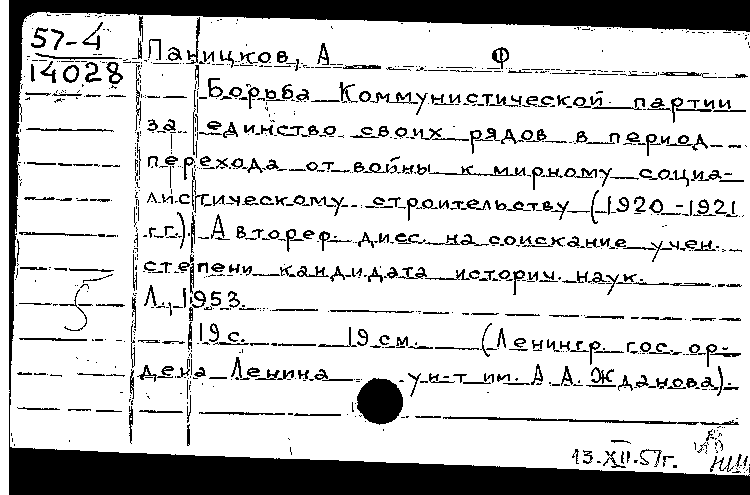 57-4
14028
Паницков, А Ф
Борьба Коммунистической партии
за единство своих рядов в период
перехода от войны к мирному социа-
листическому строительству (1920-1921
гг.) Автореф. дисс. на соискание учен.
степени кандидата историч. наук.
Л., 1953.
19 с. 19 см. (Ленингр. гос. ор-
дена Ленина ун-т им. А. А. Жданова).
13.XII.57г.